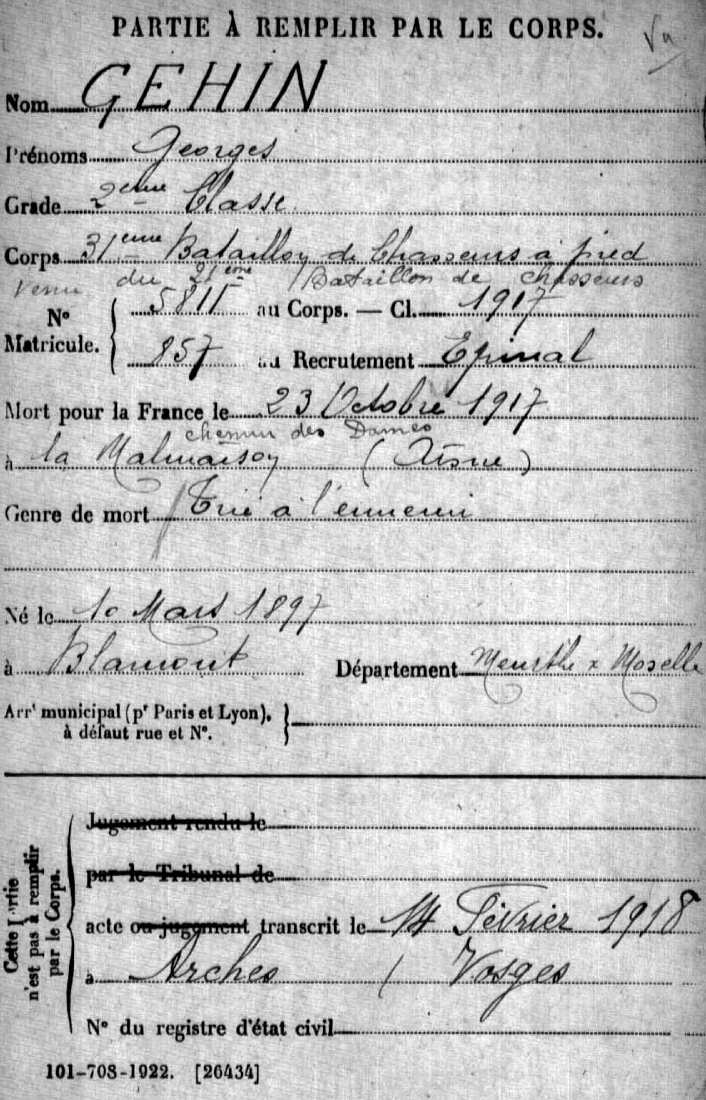 PARTIE À REMPLIR PAR LE CORPS.
Vu
Nom GEHIN
Prénoms Georges
Grade 2eme Classe
Corps 31eme Bataillon de Chasseurs à pied
Venu du 21ème Bataillon de chasseurs
N° Matricule.
5811 au Corps. — Cl. 1917
857 au Recrutement Epinal
Mort pour la France le 23 Octobre 1917
chemin des Dames
à la Malmaison (Aisne)
Genre de mort Tué à l'ennemi
Né le 10 Mars 1897
à Blamont Département Meurthe & Moselle
Arrt municipal (pr Paris et Lyon),
à défaut rue et N°.
Cette partie
n'est pas à remplir
par le Corps.
Jugement rendu le
par le Tribunal de
acte ou jugement transcrit le 14 Février 1918
à Arches (Vosges
N° du registre d'état civil
101-708-1922. [26434]